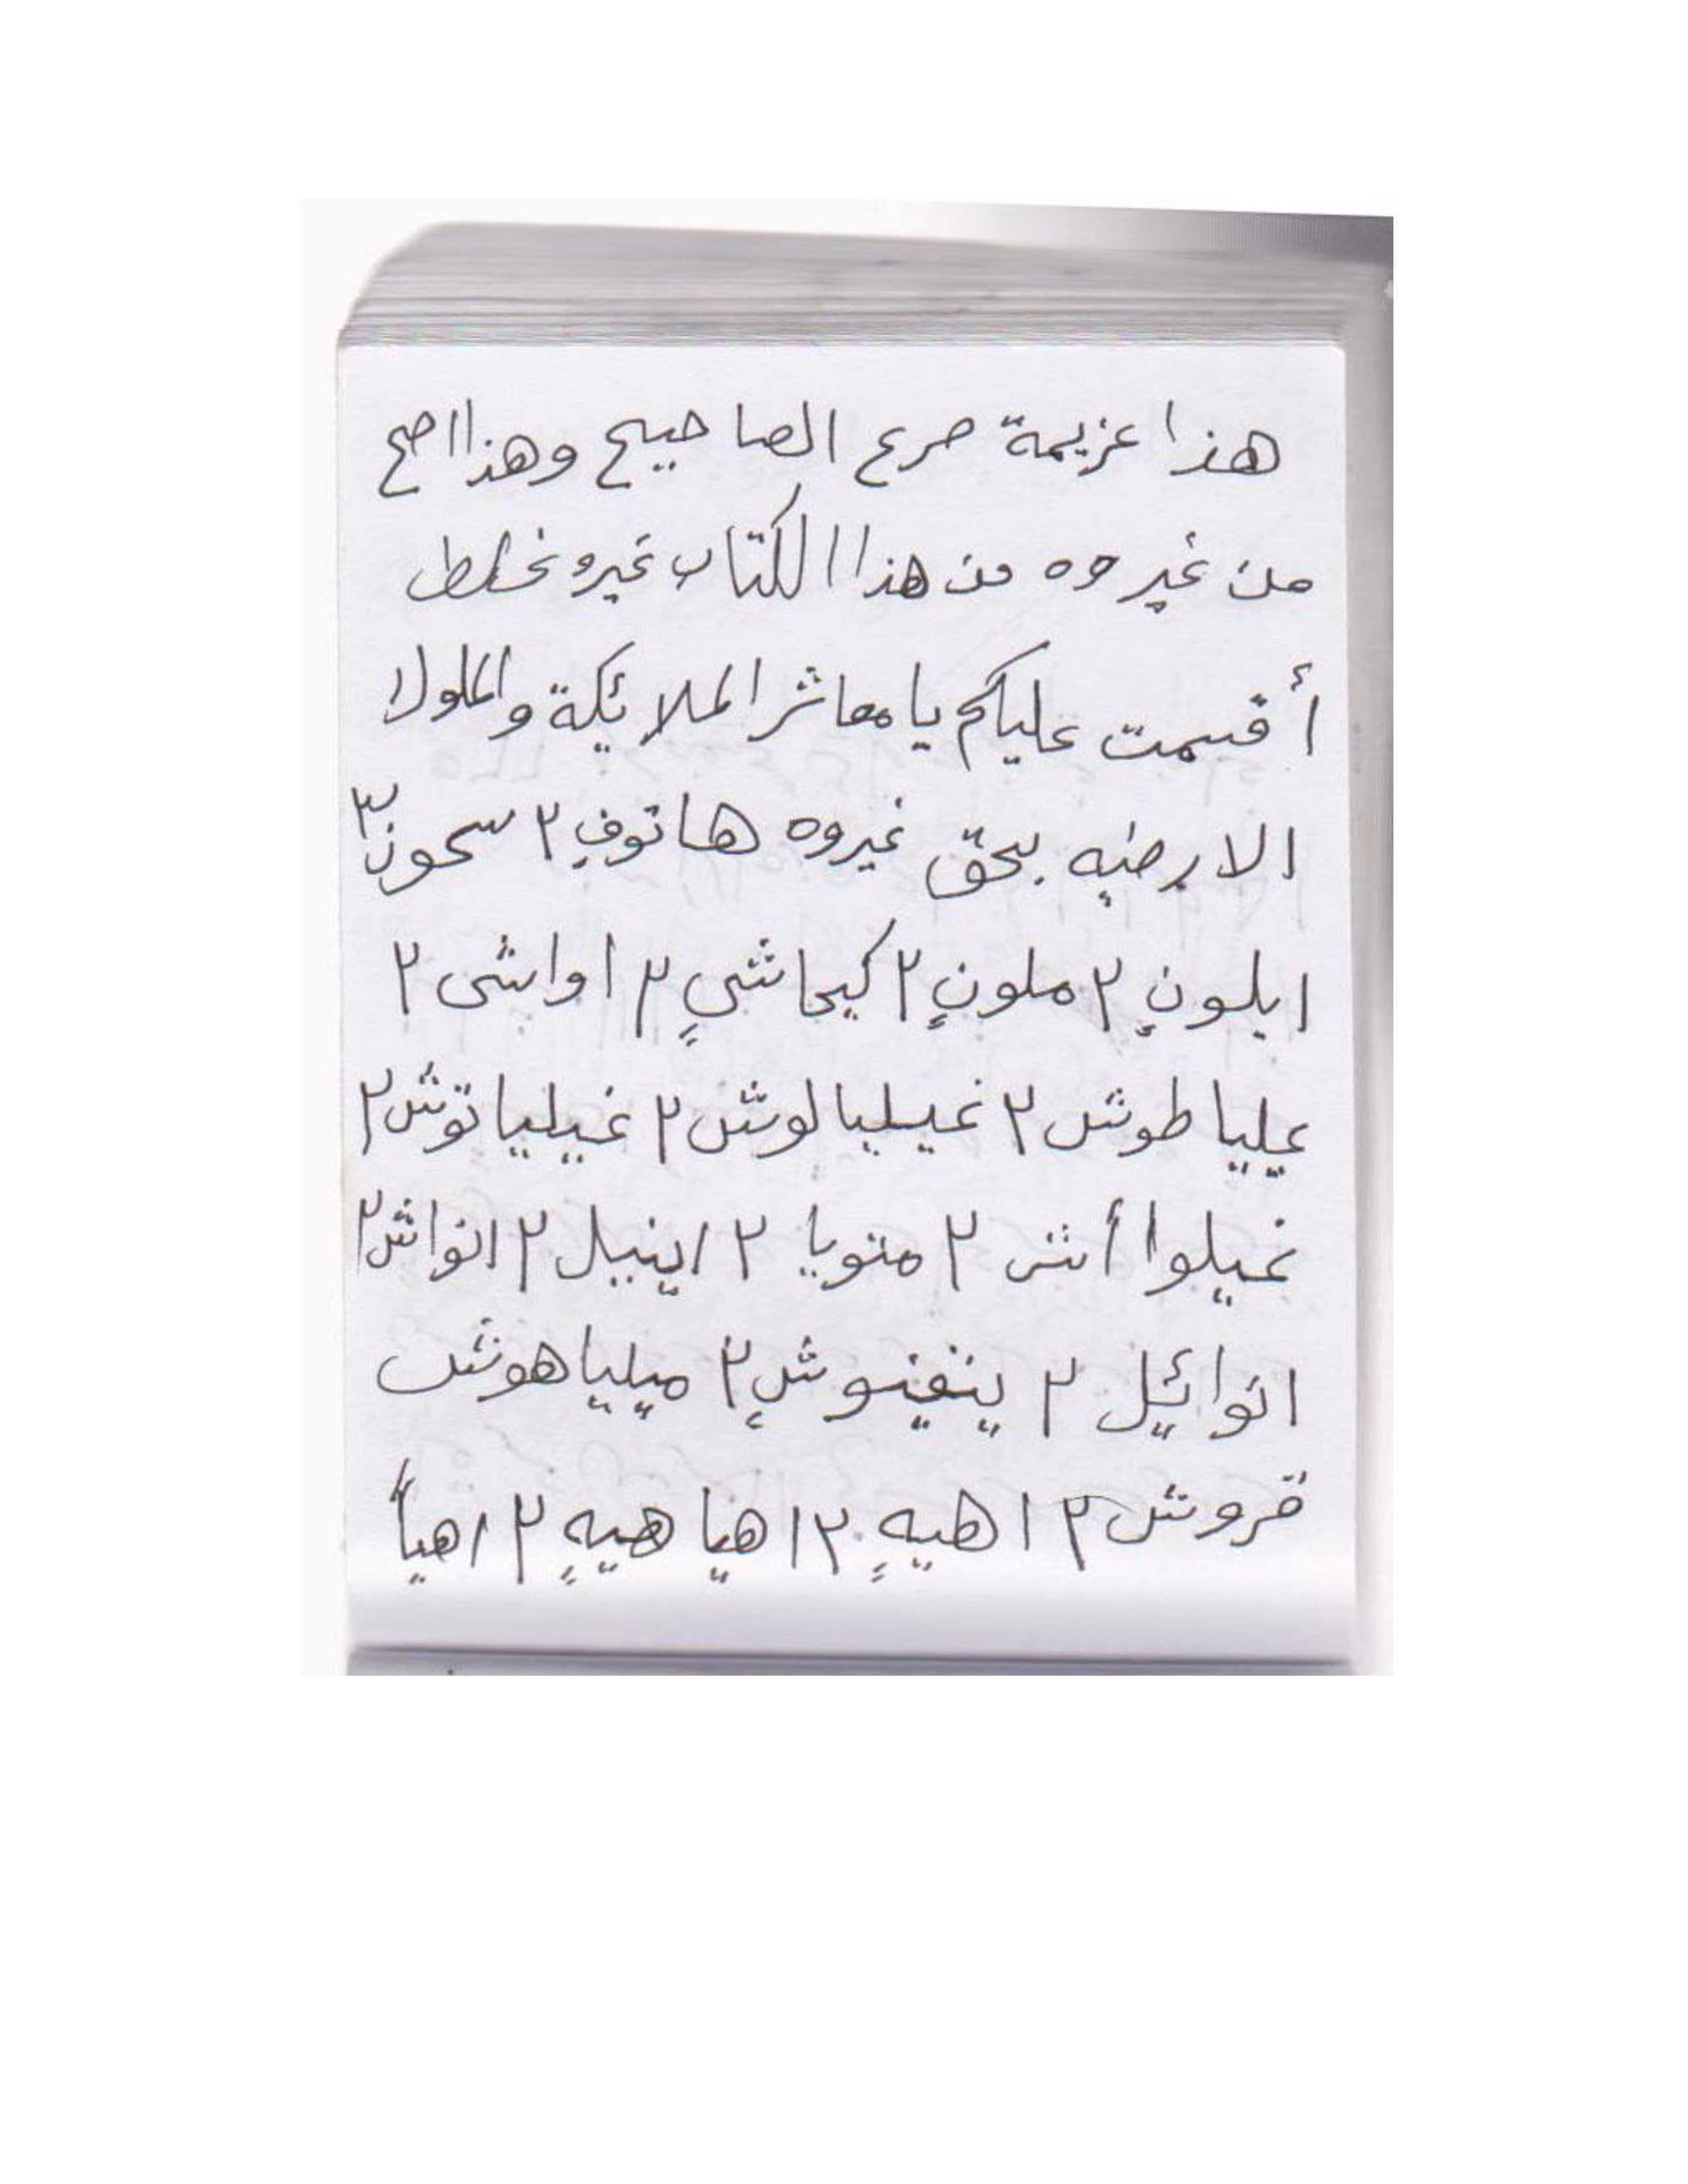 هذا عزيمة صرع الصاحيح وهذا اصح
من غيروه من هذا الكتاب غيرو غلط
أقسمت عليكم يا معاشر الملائكة والملوك
الارضيه بحق غيروه هاتوف ٢ سحون ٢
ايلون ٢ ملون ٢ كيحاشي ٢ اواشى ٢
عليا طوش ٢ غيليالوش ٢ غيلياتوش ٢
غيلوا أش ٢ متويا ٢ اينيل ٢ انواش ٢
انوائيل ٢ ينفينوش ٢ ميلياهوش
قروش ٢ اهيه ٢ اهيا هيه ٢ اهيأ